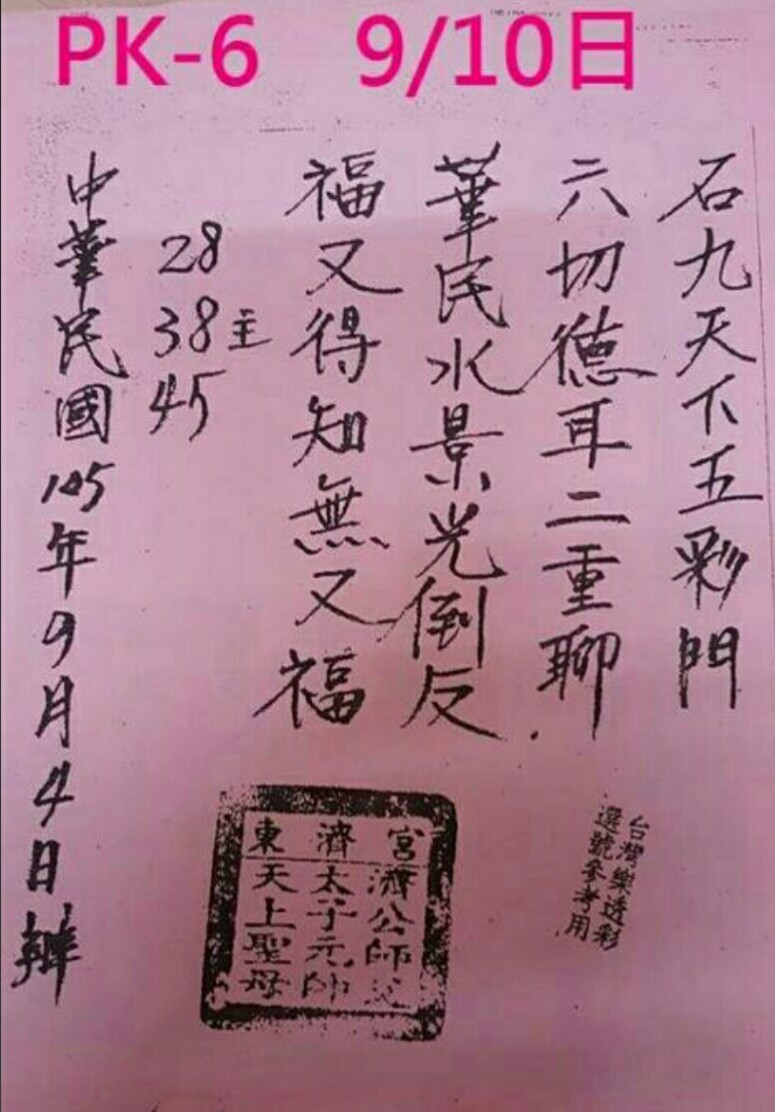 PK-6 9/10日
石九天下五彩門
六切德耳二重聊
華民水景光倒反
福又得知無又福
28
38主
45
中華民國105年9月4日辦
台灣樂透彩
選號參考用
宮濟東
濟公師父
太子元帥
天上聖母